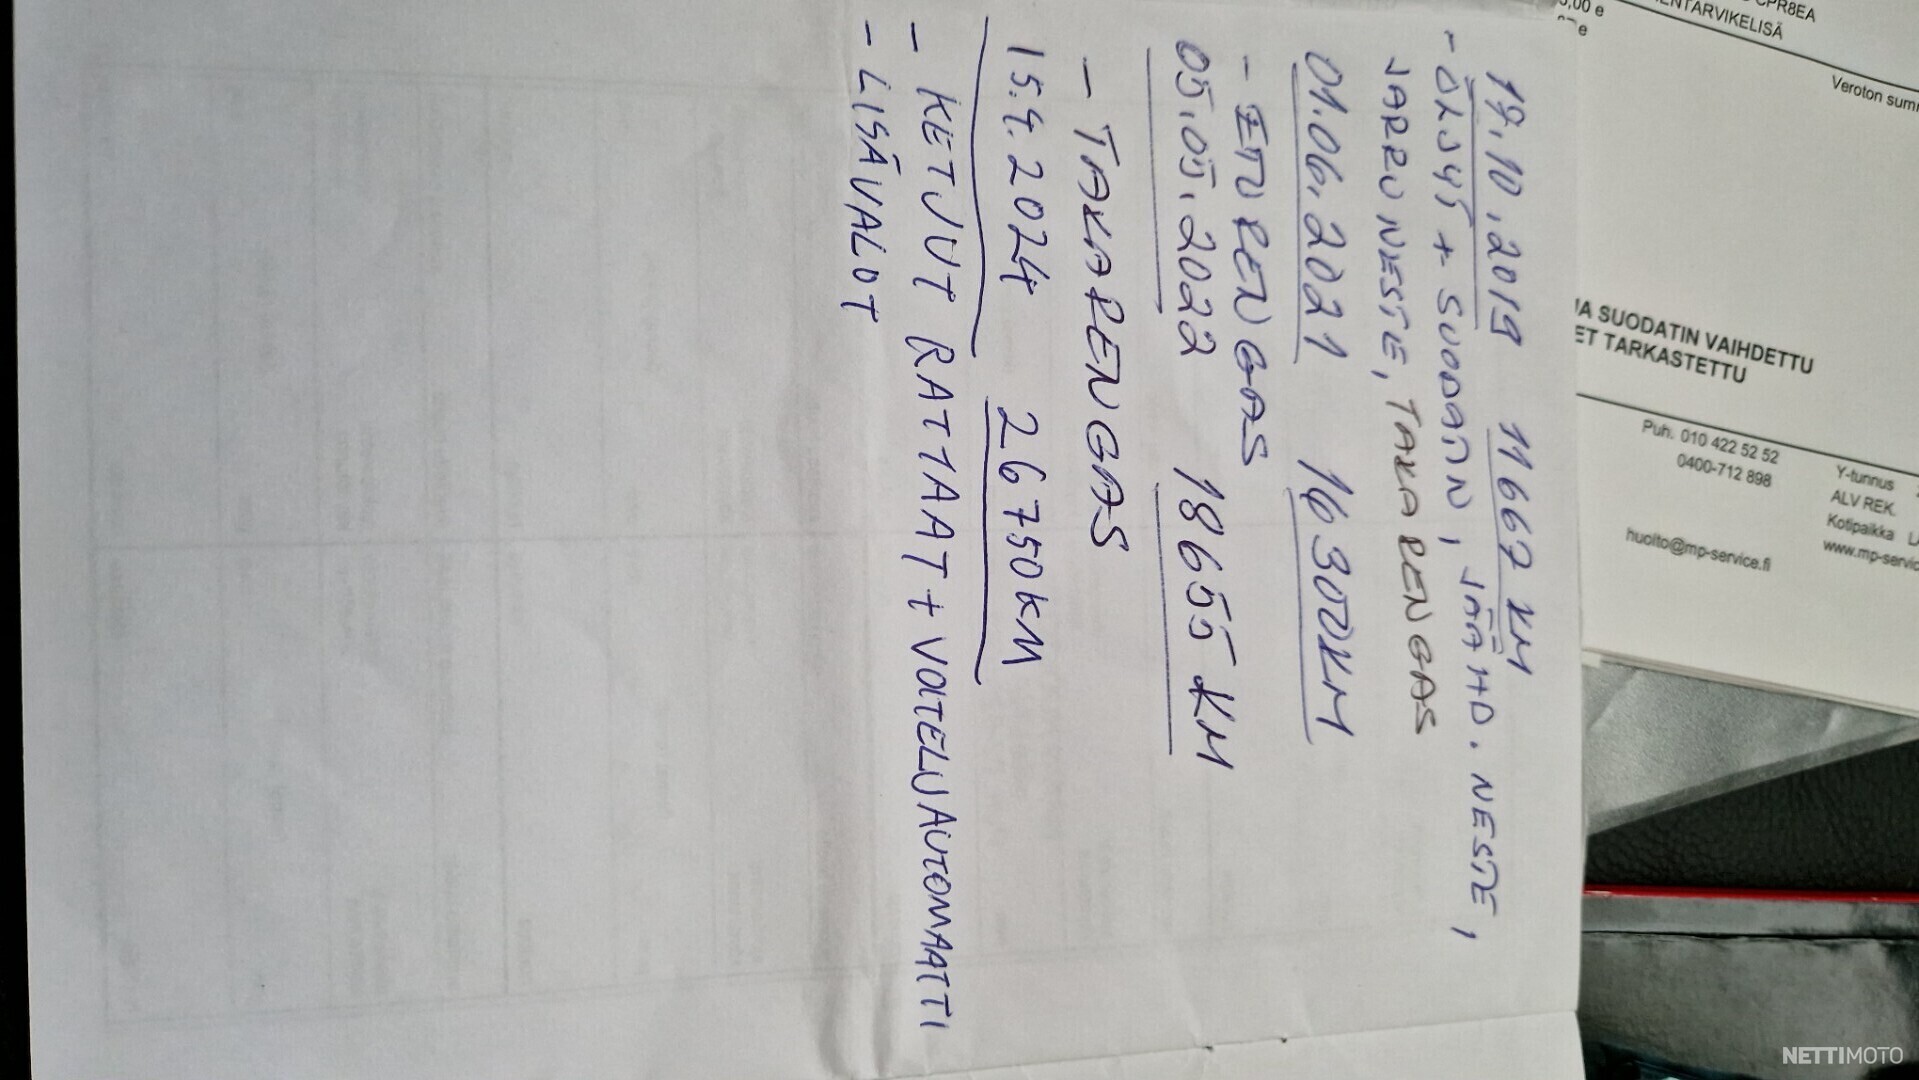 19.10.2019 11667 KM
- ÖLJYT + SUODATIN, JÄÄHD. NESTE,
JARRUNESTE, TAKARENGAS
01.06.2021 16300KM
- ETURENGAS
05.05.2022 18655 KM
- TAKARENGAS
15.4.2024 26750KM
- KETJUT RATTAAT + VOITELUAUTOMAATTI
- LISÄVALOT
CPR8EA
,00 e
e
Veroton summ
JA SUODATIN VAIHDETTU
ET TARKASTETTU
Puh. 010 422 52 52
0400-712 898
huolto@mp-service.fi
Y-tunnus
ALV REK.
Kotipaikka
www.mp-servic
NETTIMOTO